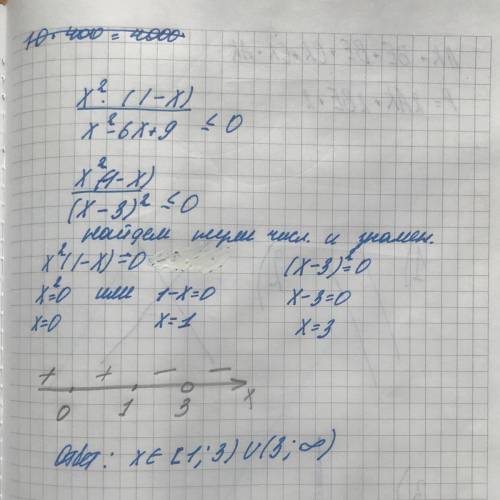 10·400=4000
x²·(1-x)
x²-6x+9 ≤0
x²(1-x)
(x-3)² ≤0
найдем нули числ. и знамен.
x²(1-x)=0 (x-3)²=0
x²=0 или 1-x=0 x-3=0
x=0 x=1 x=3
+ + - -
0 1 3 x
Ответ: x∈[1;3)∪(3;∞)